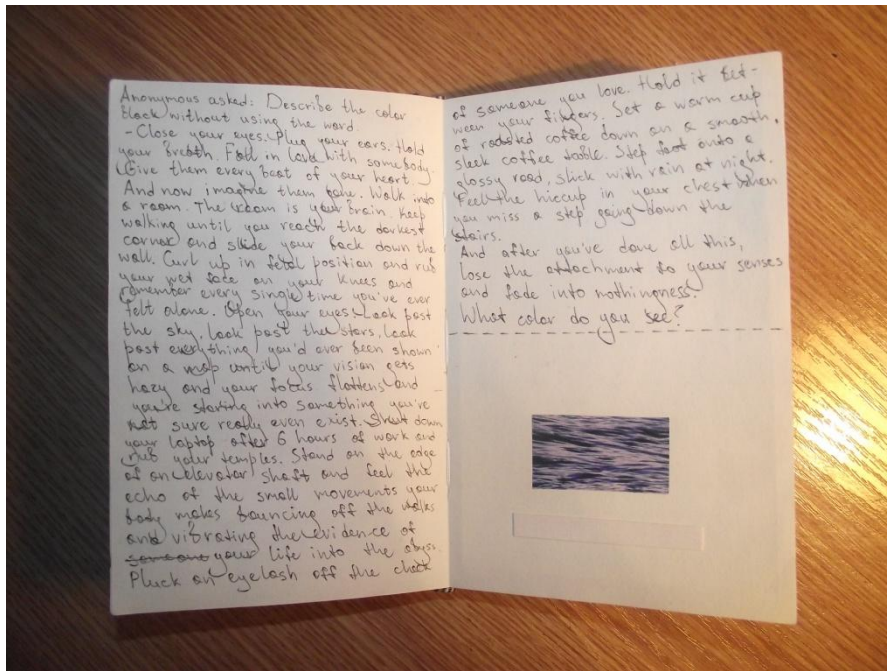 Anonymous asked: Describe the color
black without using the word.
- Close your eyes. Plug your ears. Hold
your breath. Fall in love with somebody.
Give them every beat of your heart.
And now imagine them gone. Walk into
a room. The room is your brain. Keep
walking until you reach the darkest
corner and slide your back down the
wall. Curl up in fetal position and rub
your wet face on your knees and
remember every single time you've ever
felt alone. Open your eyes. Look past
the sky, look past the stars, look
past everything you'd ever been shown
on a map until your vision gets
hazy and your focus flattens and
you're starting into something you've
not sure really even exist. Shut down
your laptop after 6 hours of work and
rub your temples. Stand on the edge
of an elevator shaft and feel the
echo of the small movements your
body makes bouncing off the walls
and vibrating the evidence of
someone your life into the abyss.
Pluck an eyelash off the cheek
of someone you love. Hold it bet-
ween your fingers. Set a warm cup
of roasted coffee down on a smooth,
sleek coffee table. Step foot onto a
glossy road, slick with rain at night.
Feel the hiccup in your chest when
you miss a step going down the
stairs.
And after you've done all this,
lose the attachment to your senses
and fade into nothingness.
What color do you see?